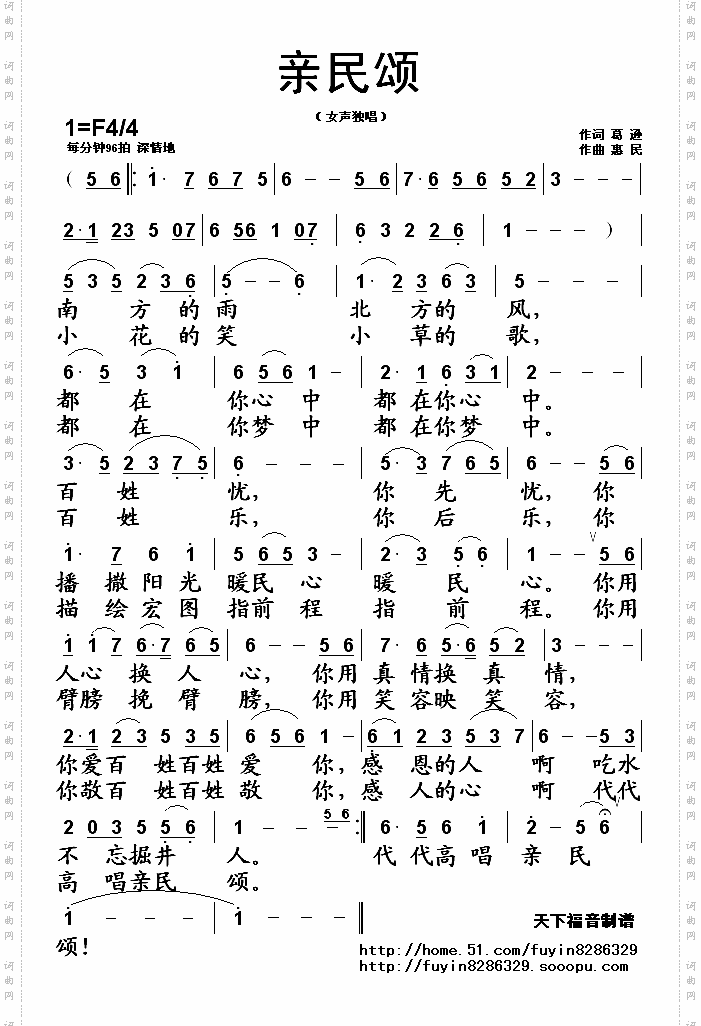 亲民颂
（女声独唱）
1=F4/4
每分钟96拍 深情地
作词 葛 逊
作曲 惠 民
( 5 6 ‖: 1· 7 6 7 5 | 6 - - 5 6 | 7· 6 5 6 5 2 | 3 - - -
2· 1 23 5 07 | 6 56 1 07 | 6 3 2 2 6 | 1 - - - )
5 3 5 2 3 6 | 5 - - 6 | 1· 2 3 6 3 | 5 - - -
南 方 的 雨 北 方 的 风，
小 花 的 笑 小 草 的 歌，
6· 5 3 1 | 6 5 6 1 - | 2· 1 6 3 1 | 2 - - -
都 在 你心 中 都 在你心 中。
都 在 你梦 中 都 在你梦 中。
3· 5 2 3 7 5 | 6 - - - | 5· 3 7 6 5 | 6 - - 5 6
百 姓 忧， 你 先 忧，你
百 姓 乐， 你 后 乐，你
1· 7 6 1 | 5 6 5 3 - | 2· 3 5 6 | 1 - - 5 6
播 撒 阳 光 暖民 心 暖 民 心。你用
描 绘 宏 图 指前 程 指 前 程。你用
1· 1 7 6· 7 6 5 | 6 - - 5 6 | 7· 6 5· 6 5 2 | 3 - - -
人心 换 人 心，你用 真 情换 真 情，
臂膀 挽 臂 膀，你用 笑 容映 笑 容，
2· 1 2 3 5 3 5 | 6 5 6 1 - | 6 1 2 3 5 3 7 | 6 - - 5 3
你爱百 姓百姓 爱 你，感 恩的人 啊 吃水
你敬百 姓百姓 敬 你，感 人的心 啊 代代
2 0 3 5 5 6 | 1 - - 5 6 :‖ 6· 5 6 1 | 2 - 5 6
不 忘掘井 人。 代 代高 唱 亲 民
高 唱亲民 颂。
1 - - - | 1 - - - ‖
颂！
天下福音制谱
http://home.51.com/fuyin8286329
http://fuyin8286329.sooopu.com
词曲网